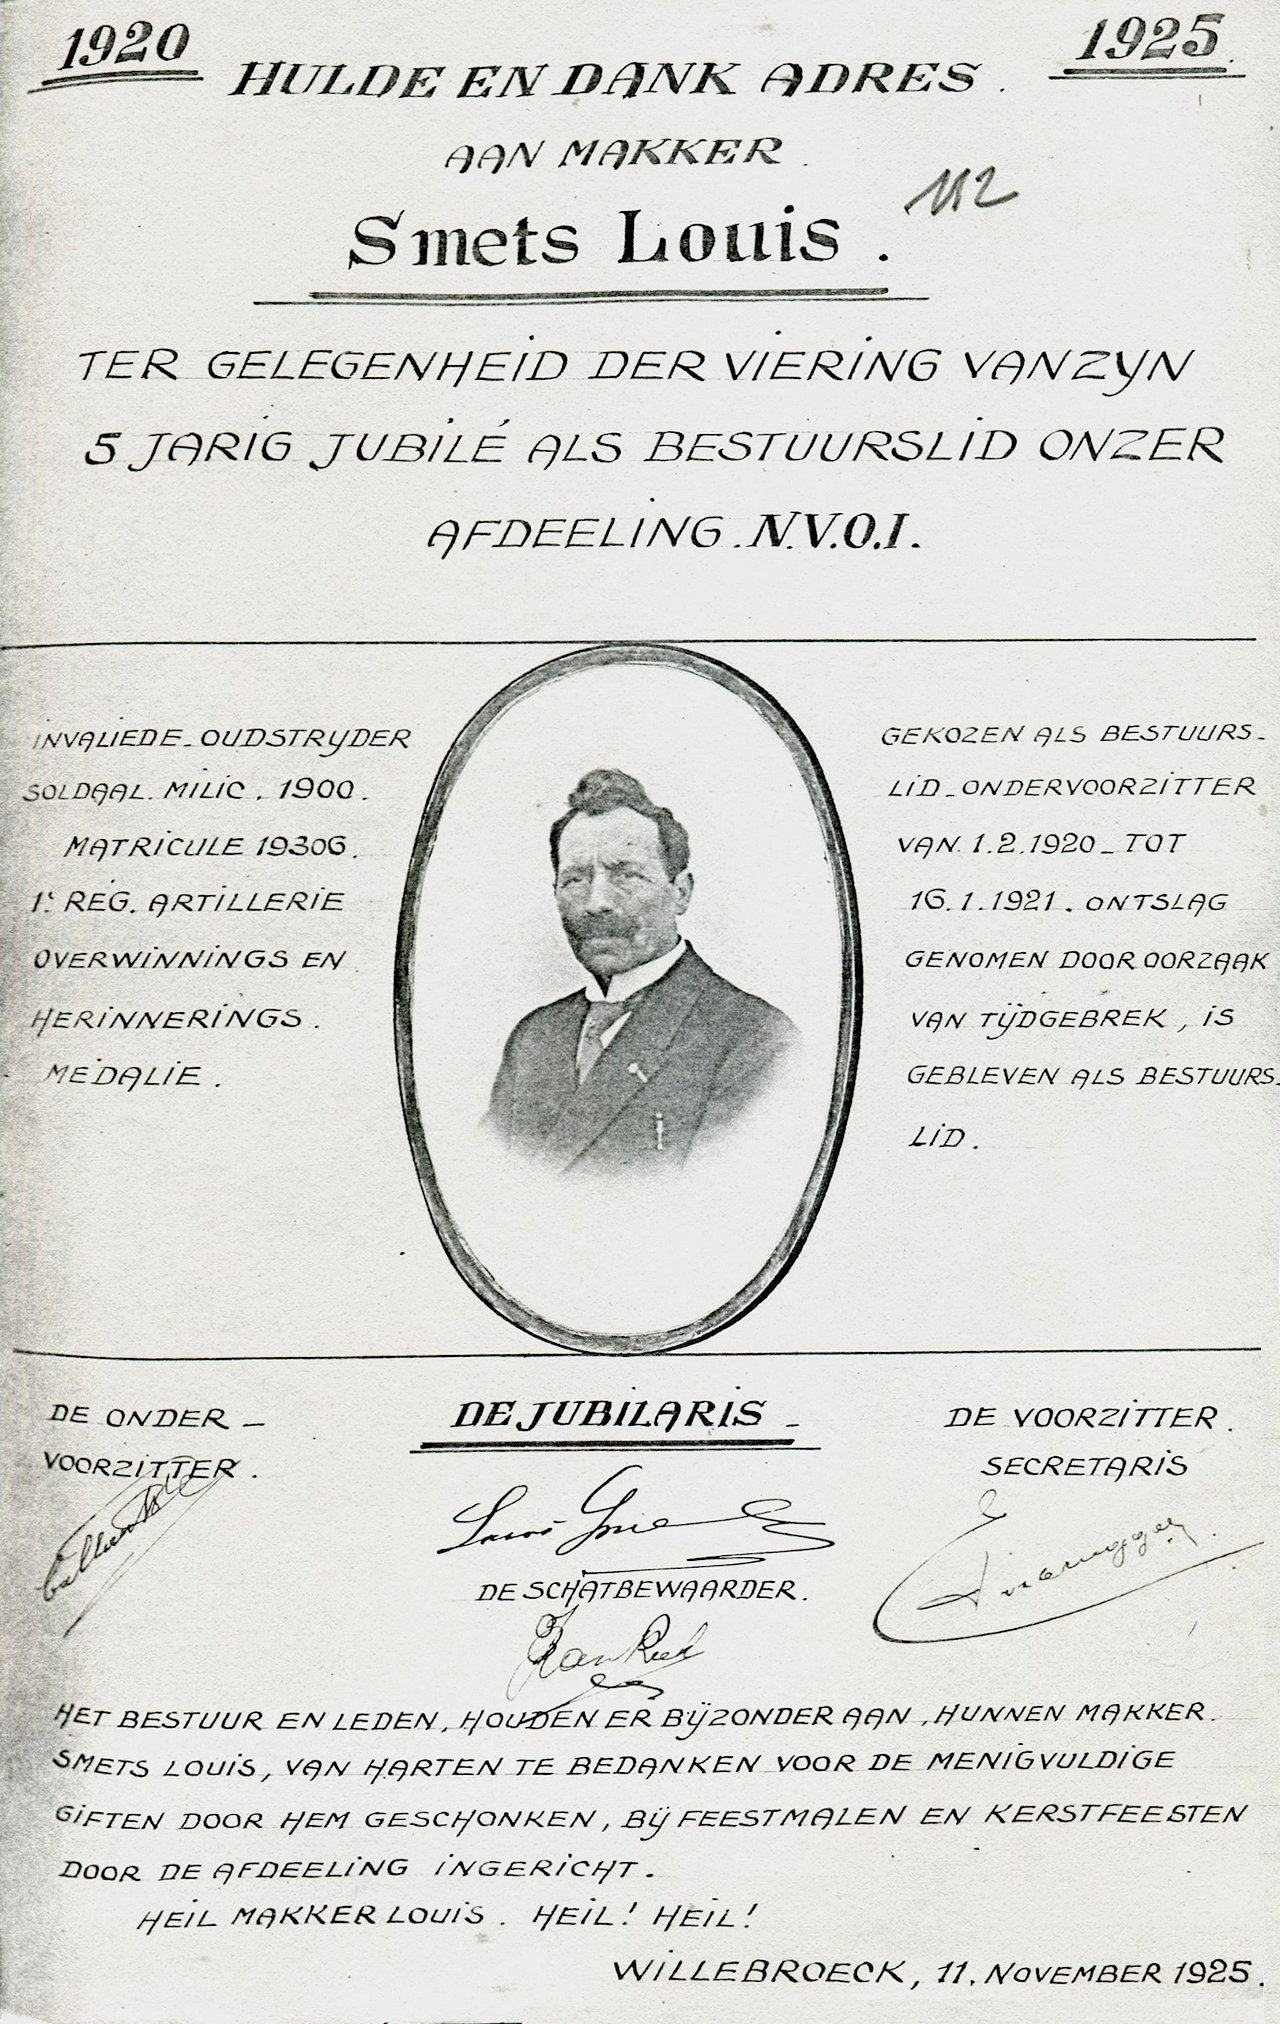 1920 1925
HULDE EN DANK ADRES.
AAN MAKKER.
Smets Louis.
112
TER GELEGENHEID DER VIERING VAN ZYN
5 JARIG JUBILÉ ALS BESTUURSLID ONZER
AFDEELING. N.V.O.I.
INVALIEDE-OUDSTRYDER
SOLDAAL. MILIC. 1900.
MATRICULE 19306.
1e REG. ARTILLERIE
OVERWINNINGS EN
HERINNERINGS.
MEDALIE.
GEKOZEN ALS BESTUURS-
LID-ONDERVOORZITTER
VAN 1.2.1920 - TOT
16.1.1921. ONTSLAG
GENOMEN DOOR OORZAAK
VAN TIJDGEBREK, IS
GEBLEVEN ALS BESTUURS-
LID.
DE ONDER-
VOORZITTER.
DE JUBILARIS -
Louis Smets
DE SCHATBEWAARDER.
DE VOORZITTER.
SECRETARIS
HET BESTUUR EN LEDEN, HOUDEN ER BIJZONDER AAN, HUNNEN MAKKER.
SMETS LOUIS, VAN HARTEN TE BEDANKEN VOOR DE MENIGVULDIGE
GIFTEN DOOR HEM GESCHONKEN, BIJ FEESTMALEN EN KERSTFEESTEN
DOOR DE AFDEELING INGERICHT.
HEIL MAKKER LOUIS. HEIL! HEIL!
WILLEBROECK, 11. NOVEMBER 1925.